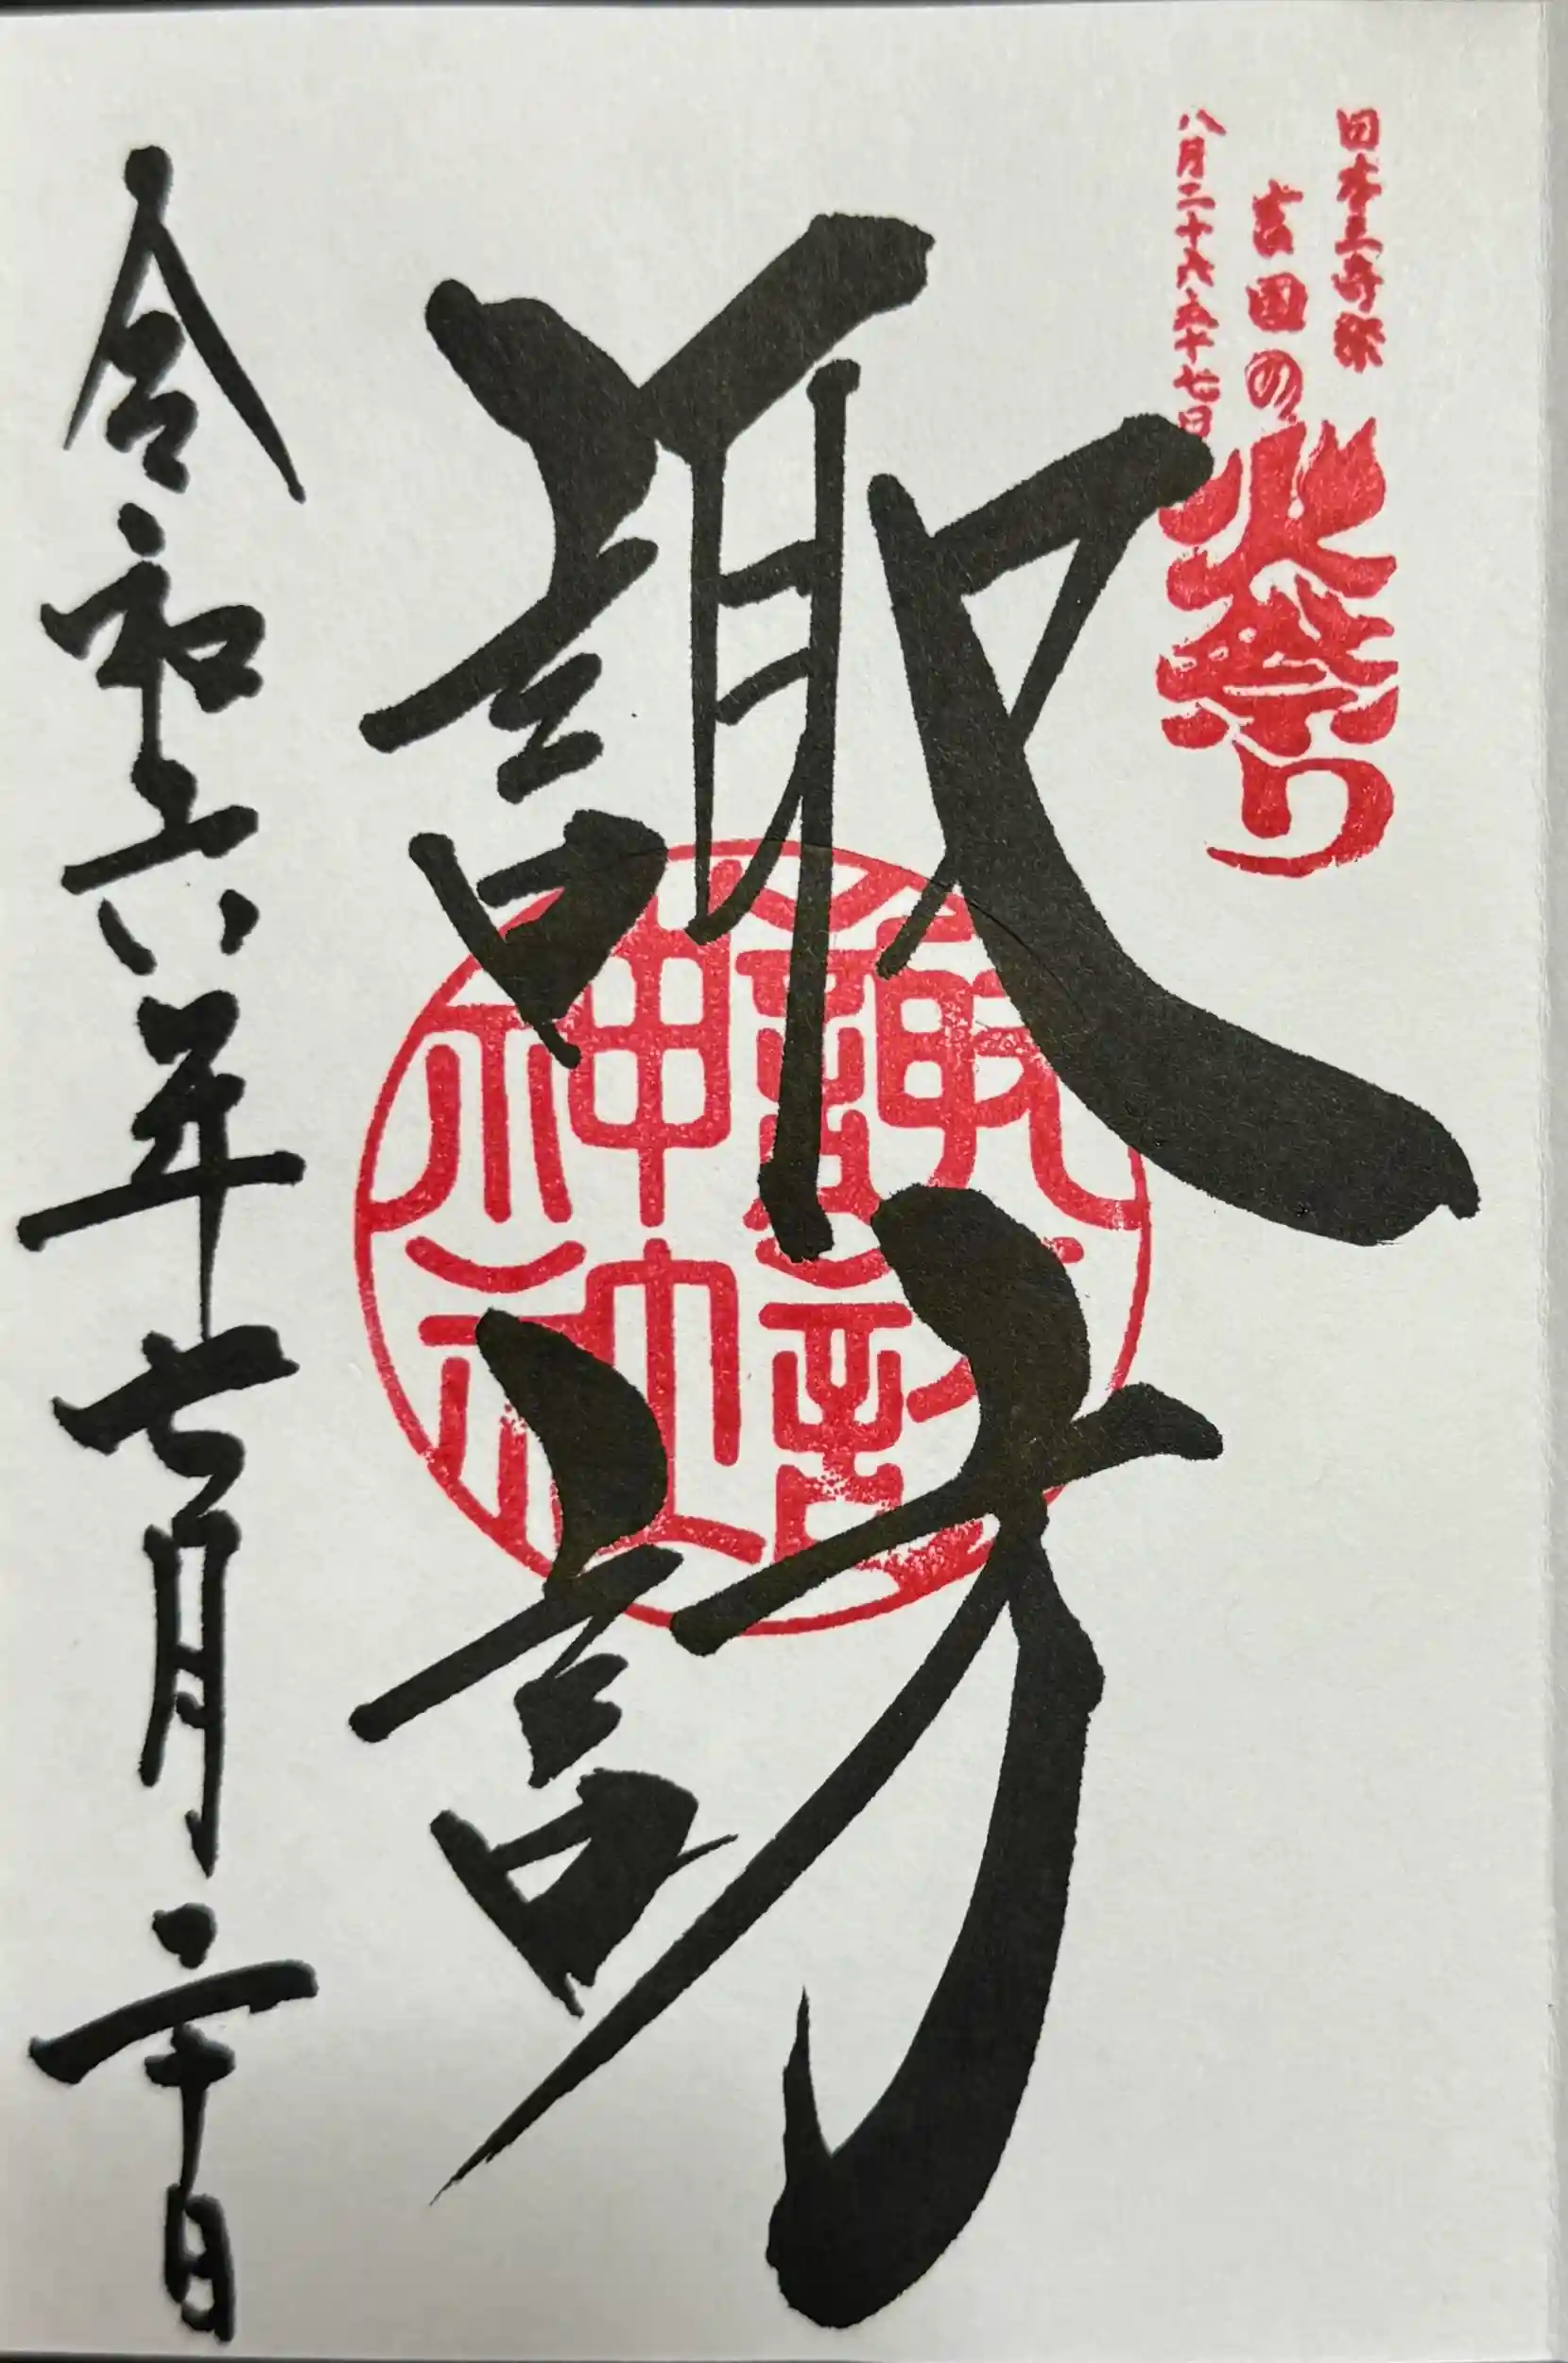 日本三奇祭
吉田の火祭り
八月二十六・二十七日
諏訪
諏訪神社
令和六年七月二十日